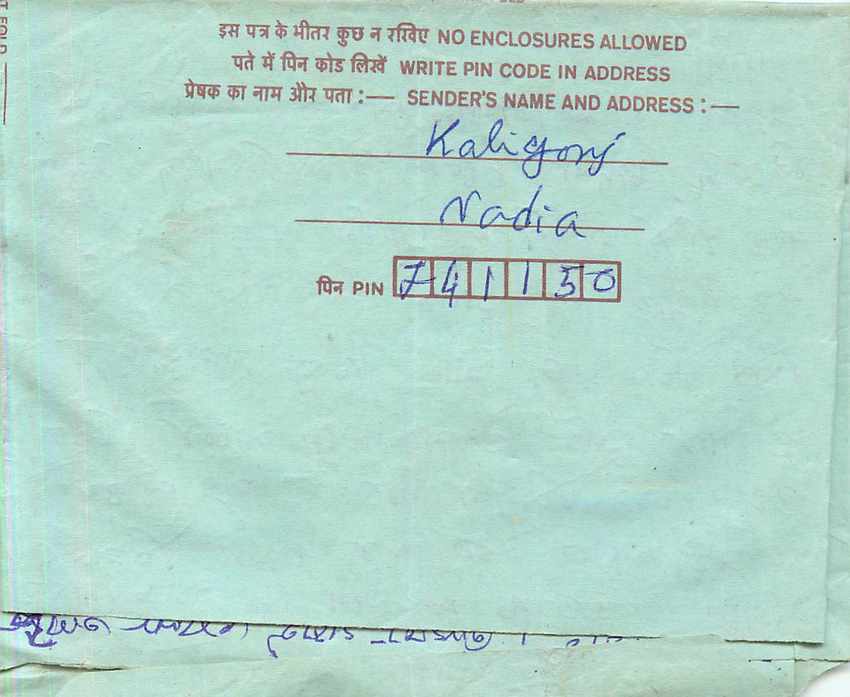 इस पत्र के भीतर कुछ न रखिए NO ENCLOSURES ALLOWED
पते में पिन कोड लिखें WRITE PIN CODE IN ADDRESS
प्रेषक का नाम और पता :— SENDER'S NAME AND ADDRESS :—
Kaligonj
Nadia
पिन PIN 741150